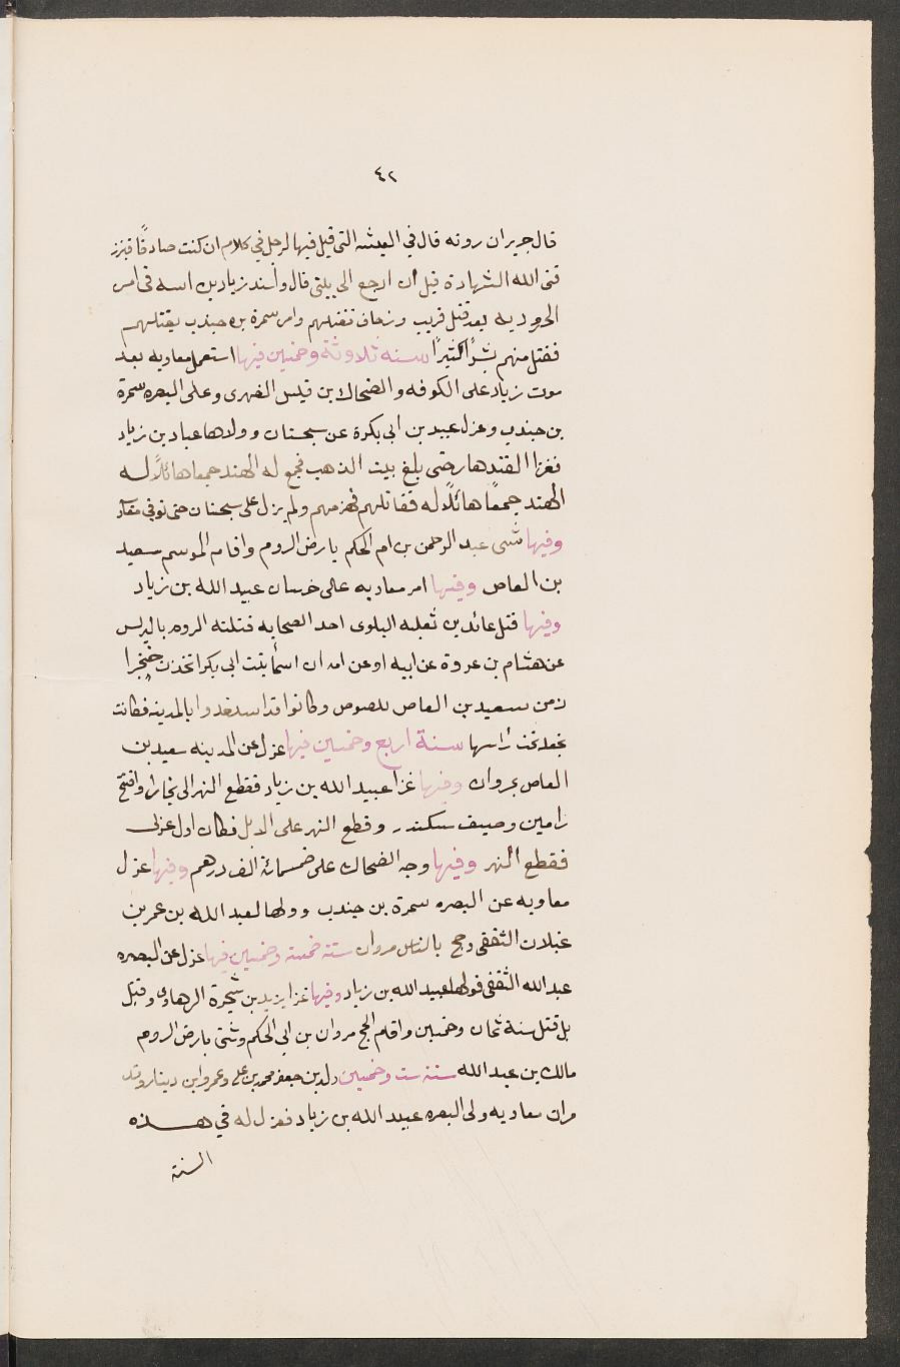 ٤٢
قال جرير ان رونه قال في العيشه التي قيل فيها لرجل في كلام ان كنت صادقًا فبرز
قنى الله الشهادة قبل ان ارجع الى بيتى قال واسند زياد بن اسه فى امر
الحروديه بعد قتل قريب وزحاف تقتلهم وامر سمرة بن جندب يقتلهم
فقتل منهم بشرًا كثيرًا سنه ثلاوثة وخمنين فيها استعمل معاويه بعد
موت زياد على الكوفه والضحاك بن قيس الفهرى وعلى البصره سمرة
بن جندب وعزل عبيد بن ابى بكرة عن سجستان وولدها عباد بن زياد
فغزا القندهار حتى بلغ بيت الذهب فجمع له الهند جمعا هائلًا له
الهند جمعًا هائلًا له فقاتلهم فهزمهم ولم يزل على سجستان حتى توفى
وفيها شتى عبد الرحمن بن ام الحكم بارض الروم واقام الموسم سعيد
بن العاص وفيها امر معاويه على خرسان عبيد الله بن زياد
وفيها قتل عائد بن ثعلبه البلوى احد الصحابه قتلته الروم بالبرلس
عن هشام بن عروة عن ابيه او عن امه ان اسمأ بنت ابى بكر اتخذت خنجرا
زمن سعيد بن العاص للصوص وكانوا قد استغدوا بالمدينه فكانت
تجعله تحت راسها سنة اربع وخمسين فيها عزل عن المدينه سعيد بن
العاص بمروان وفيها غزا عبيد الله بن زياد فقطع النهر الى بخارا وافتتح
رامين وصيف سكندر وقطع النهر على الابل فكان اول عربى
فقطع النهر وفيها وجه الضحاك على خمسمائة الف درهم وفيها عزل
معاويه عن البصره سمرة بن جندب وولها لعبد الله بن عمر بن
غيلان الثقفى وحج بالناس مروان سنة خمسة وخمسين فيها عزل عن البصره
عبد الله الثقفى فولها لعبيد الله بن زياد وفيها غزا يزيد بن شجرة الرهاوى وقتل
بل قتل سنة ثمان وخمسين واقام الحج مروان بن ابى الحكم وشتى بارض الروم
مالك بن عبد الله سنة ست وخمسين ولد بن جعفر محمد بن على وعمرو ابن دينار وقد
مران معاويه ولى البصره عبيد الله بن زياد فعزل له في هـذه
السنة